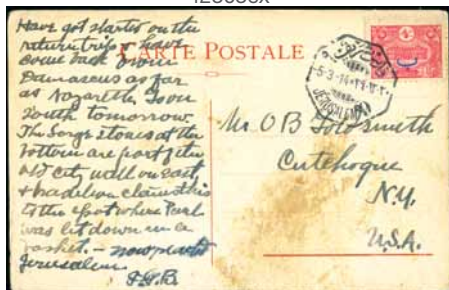 Have got started on the
return trip & have
come back from
Damascus as far
as Nazareth. Go on
South tomorrow.
The large stones at the
bottom are part of the
old city wall on east
& tradition claims this
to the spot where Paul
was let down in a
basket. –
Jerusalem
CARTE POSTALE
5-3-14
JERUSALEM
Mr O B Goldsmith
Cutchogue
N.Y.
U.S.A.